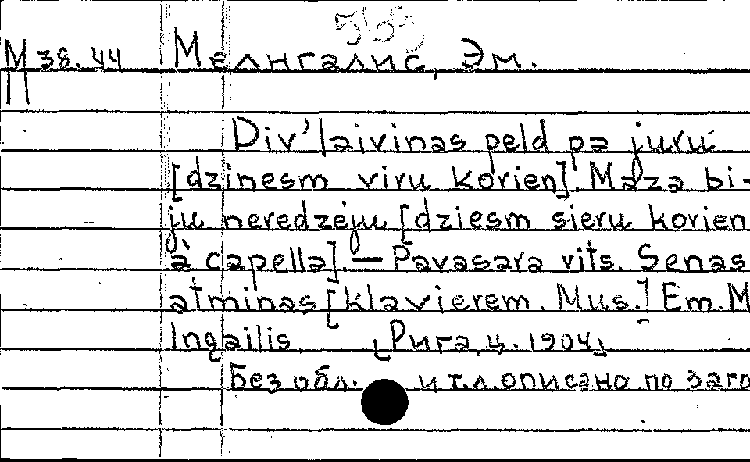 М 38.44 Мелнгалис, Эм.
Div' laivinas peld pa juru
[dzinesm viru korien]. Maza bi-
ju neredzeju [dziesm sieru korien
à capella]. — Pavasara vits. Senas
atminas [klavierem. Mus.] Em. M
Ingailis. [Рига, ц. 1904]
Без обл. и т.л. описано по заго